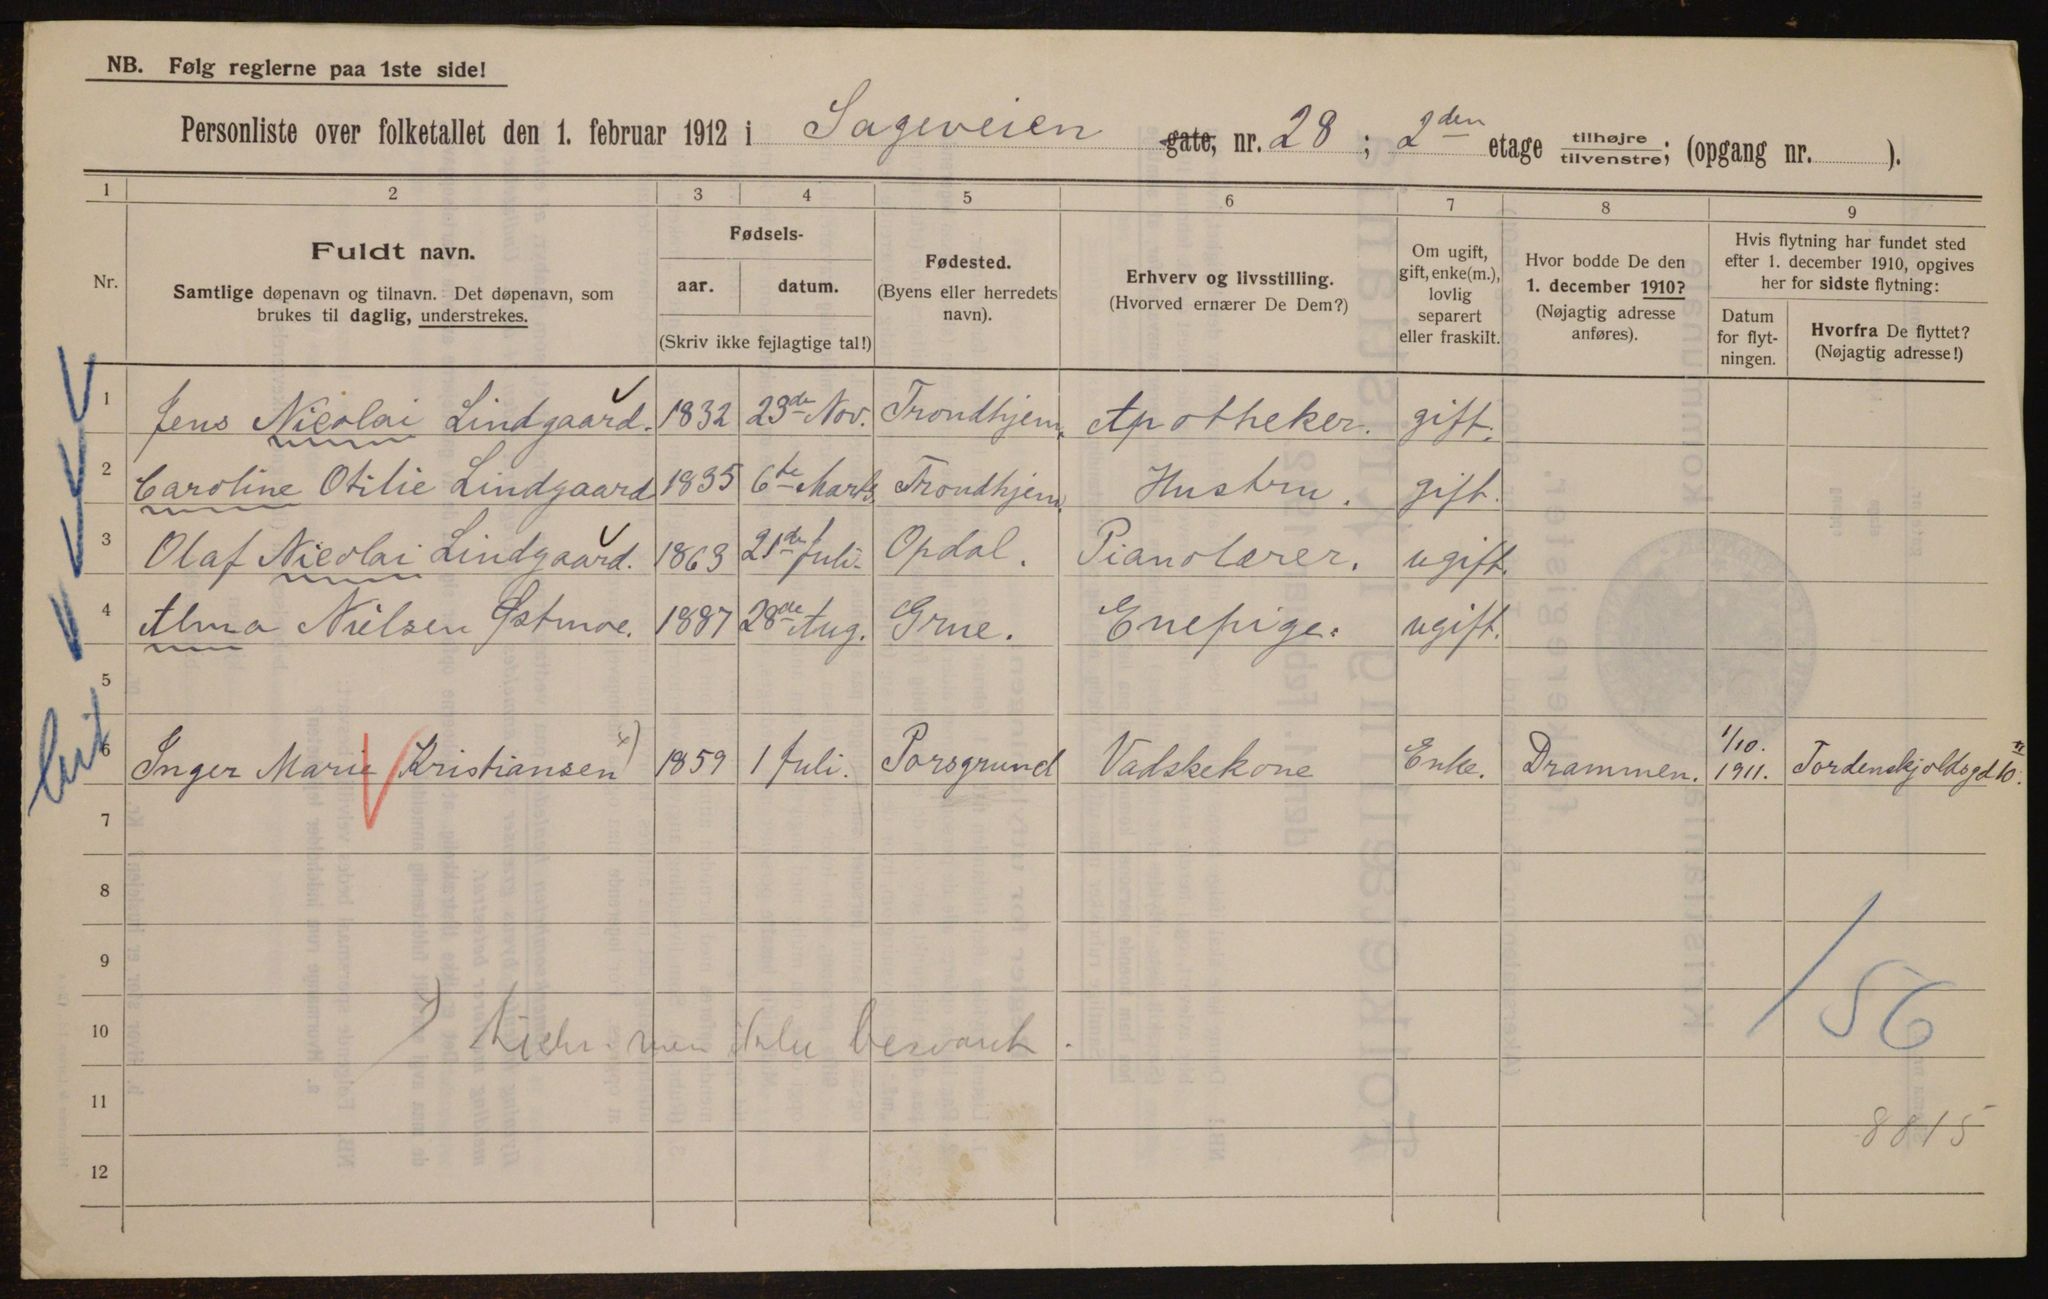 NB. Følg reglerne paa 1ste side!
Personliste over folketallet den 1. februar 1912 i Sageveien gate, nr. 28 ; 2den etage tilhøjre/tilvenstre; (opgang nr. ).
1 2 3 4 5 6 7 8 9
Nr.
Fuldt navn.
Samtlige døpenavn og tilnavn. Det døpenavn, som
brukes til daglig, understrekes.
Fødsels-
aar. datum.
(Skriv ikke fejlagtige tal!)
Fødested.
(Byens eller herredets
navn).
Erhverv og livsstilling.
(Hvorved ernærer De Dem?)
Om ugift,
gift, enke(m.),
lovlig
separert
eller fraskilt.
Hvor bodde De den
1. december 1910?
(Nøjagtig adresse
anføres).
Hvis flytning har fundet sted
efter 1. december 1910, opgives
her for sidste flytning:
Datum
for flyt-
ningen.
Hvorfra De flyttet?
(Nøjagtig adresse!)
1 Jens Nicolai Lindgaard. 1832 23de Nov. Trondhjem. Apotheker. gift.
2 Caroline Otilie Lindgaard 1835 6te Marts Trondhjem. Hustru. gift.
3 Olaf Nicolai Lindgaard. 1863 21de Juli. Opdal. Pianolærer. ugift.
4 Alma Nielsen Østmoe. 1887 28de Aug. Grue. Enepige. ugift.
5
6 Inger Marie Kristiansen x) 1859 1 Juli. Porsgrund Vadskekone Enke. Drammen. 1/10. 1911. Tordenskjoldsgd 10.
7
8
9
10 men besvart.
11
12
156
8815